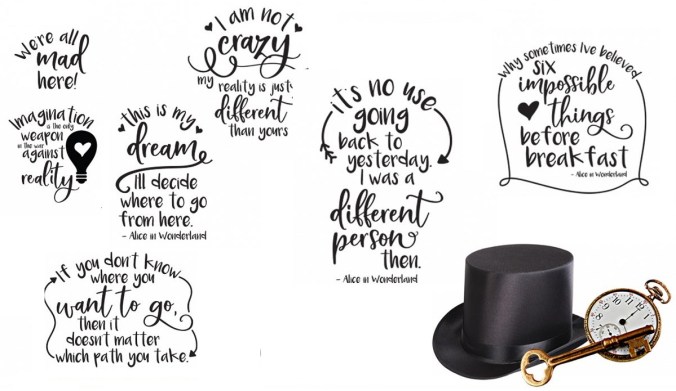 We're all
mad
here!
I am not
crazy
my reality is just
different
than yours
Imagination
is the only
weapon
in the war
against
reality
this is my
dream
I'll decide
where to go
from here.
- Alice in Wonderland
it's no use
going
back to
yesterday.
I was a
different
person
then.
- Alice in Wonderland
Why sometimes I've believed
six
impossible
things
before
breakfast
- Alice in Wonderland
If you don't know
where you
want to go,
then it
doesn't matter
which path you take.